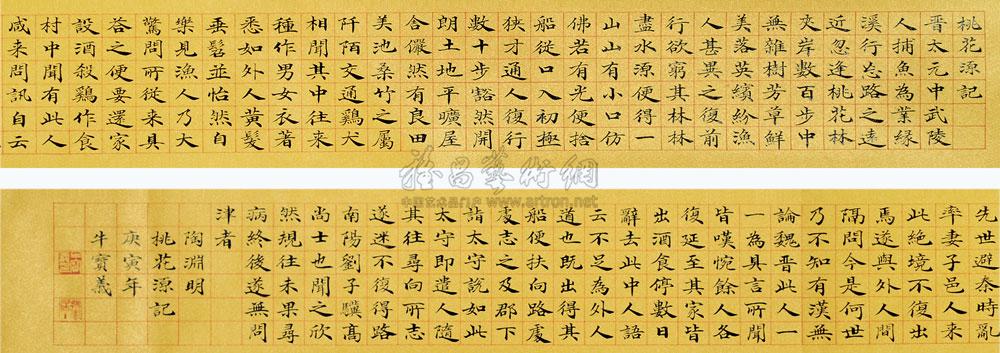 桃花源記
晉太元中武陵
人捕魚為業緣
溪行忘路之遠
近忽逢桃花林
夾岸數百步中
無雜樹芳草鮮
美落英繽紛漁
人甚異之復前
行欲窮其林林
盡水源便得一
山山有小口仿
佛若有光便捨
船從口入初極
狹才通人復行
數十步豁然開
朗土地平曠屋
舍儼然有良田
美池桑竹之屬
阡陌交通鷄犬
相聞其中往來
種作男女衣著
悉如外人黃髮
垂髫並怡然自
樂見漁人乃大
驚問所從來具
答之便要還家
設酒殺鷄作食
村中聞有此人
咸来問訊自云
先世避秦時亂
率妻子邑人来
此絕境不復出
焉遂與外人間
隔問今是何世
乃不知有漢無
論魏晉此人一
一為具言所聞
皆嘆惋餘人各
復延至其家皆
出酒食停數日
辭去此中人語
云不足為外人
道也既出得其
船便扶向路處
處志之及郡下
詣太守說如此
太守即遣人隨
其往尋向所志
遂迷不復得路
南陽劉子驥高
尚士也聞之欣
然規往未果尋
病終後遂無問
津者
陶淵明
桃花源記
庚寅年
牛寶義
雅昌藝術網
www.artron.net